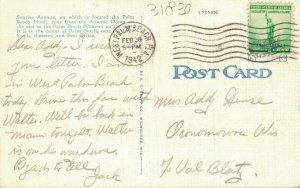 Sunrise Avenue, on which is located the Palm
Beach Hotel, runs from the
to the Palm Beach Biltmore on the
It is in the center of Palm Beach, near
hotels, theatres, and Post Office.
31830
15999N
WEST PALM BEACH, FLA.
FEB 20
4 PM
1942
POST CARD
Dear Addy. I received
your letter. I am
in West Palm Beach
today. Drove this far with
Walter. Will be back in
Miami tonight. Walter
is on his way home.
Rgards to all
Jack
Miss Addy
Oconomowoc Wis
% Val Blatz